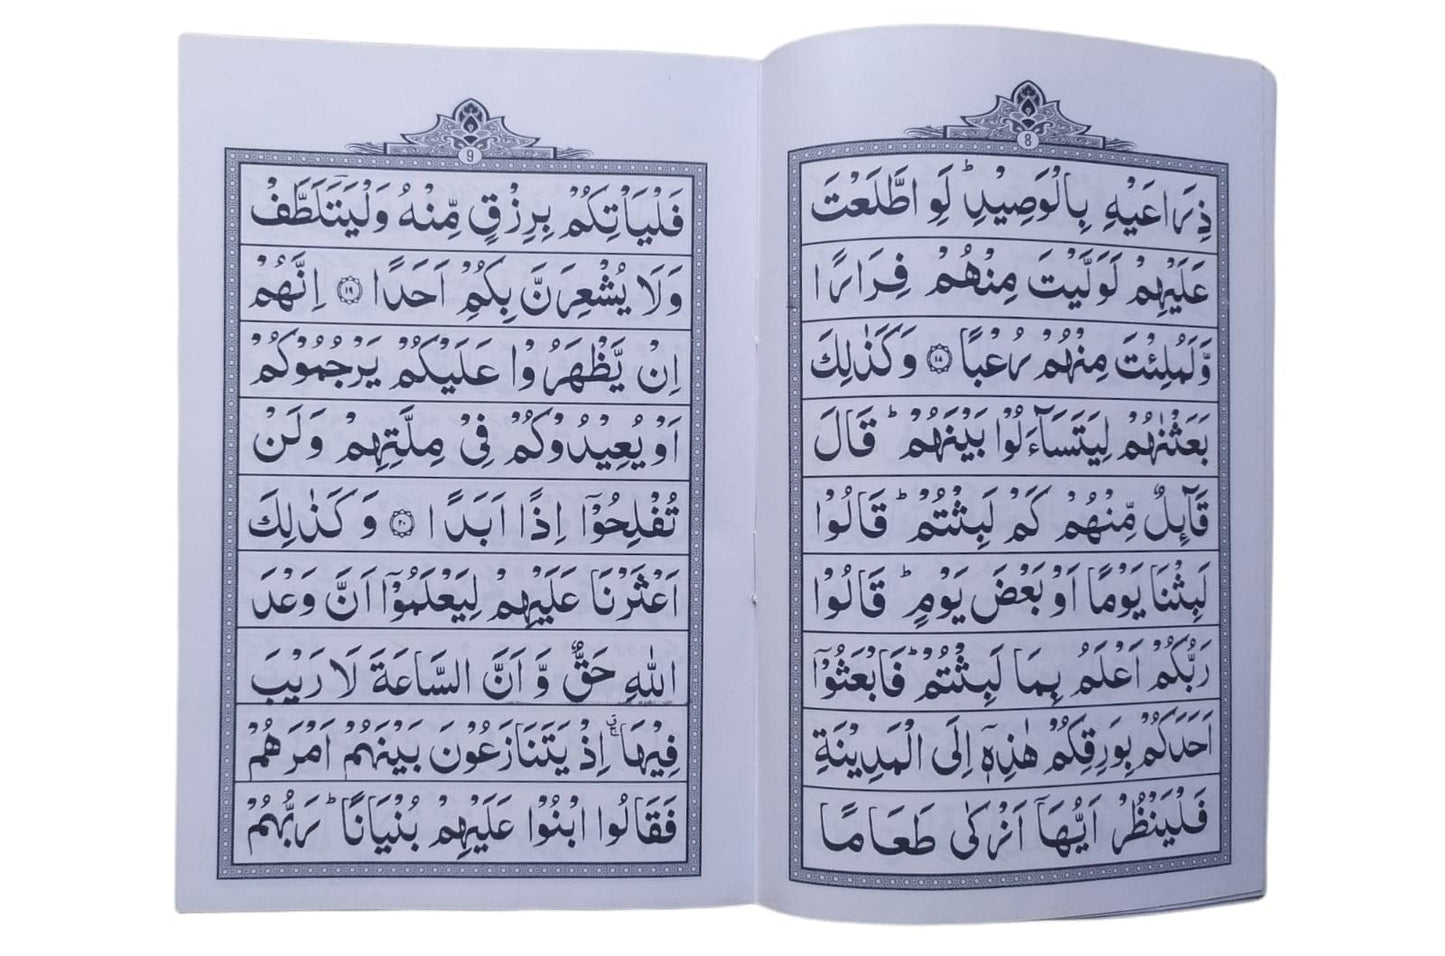 8
ذِرَاعَيْهِ بِالْوَصِيْدِ ؕ لَوِ اطَّلَعْتَ
عَلَيْهِمْ لَوَلَّيْتَ مِنْهُمْ فِرَارًا
وَّلَمُلِئْتَ مِنْهُمْ رُعْبًا ۝۱۸ وَكَذٰلِكَ
بَعَثْنٰهُمْ لِيَتَسَآءَلُوْا بَيْنَهُمْ ؕ قَالَ
قَآئِلٌ مِّنْهُمْ كَمْ لَبِثْتُمْ ؕ قَالُوْا
لَبِثْنَا يَوْمًا اَوْ بَعْضَ يَوْمٍ ؕ قَالُوْا
رَبُّكُمْ اَعْلَمُ بِمَا لَبِثْتُمْ ؕ فَابْعَثُوْۤا
اَحَدَكُمْ بِوَرِقِكُمْ هٰذِهٖۤ اِلَى الْمَدِيْنَةِ
فَلْيَنْظُرْ اَيُّهَاۤ اَزْكٰى طَعَامًا
9
فَلْيَاْتِكُمْ بِرِزْقٍ مِّنْهُ وَلْيَتَلَطَّفْ
وَلَا يُشْعِرَنَّ بِكُمْ اَحَدًا ۝۱۹ اِنَّهُمْ
اِنْ يَّظْهَرُوْا عَلَيْكُمْ يَرْجُمُوْكُمْ
اَوْ يُعِيْدُوْكُمْ فِيْ مِلَّتِهِمْ وَلَنْ
تُفْلِحُوْۤا اِذًا اَبَدًا ۝۲۰ وَكَذٰلِكَ
اَعْثَرْنَا عَلَيْهِمْ لِيَعْلَمُوْۤا اَنَّ وَعْدَ
اللّٰهِ حَقٌّ وَّاَنَّ السَّاعَةَ لَا رَيْبَ
فِيْهَا ۚ اِذْ يَتَنَازَعُوْنَ بَيْنَهُمْ اَمْرَهُمْ
فَقَالُوا ابْنُوْا عَلَيْهِمْ بُنْيَانًا ؕ رَبُّهُمْ